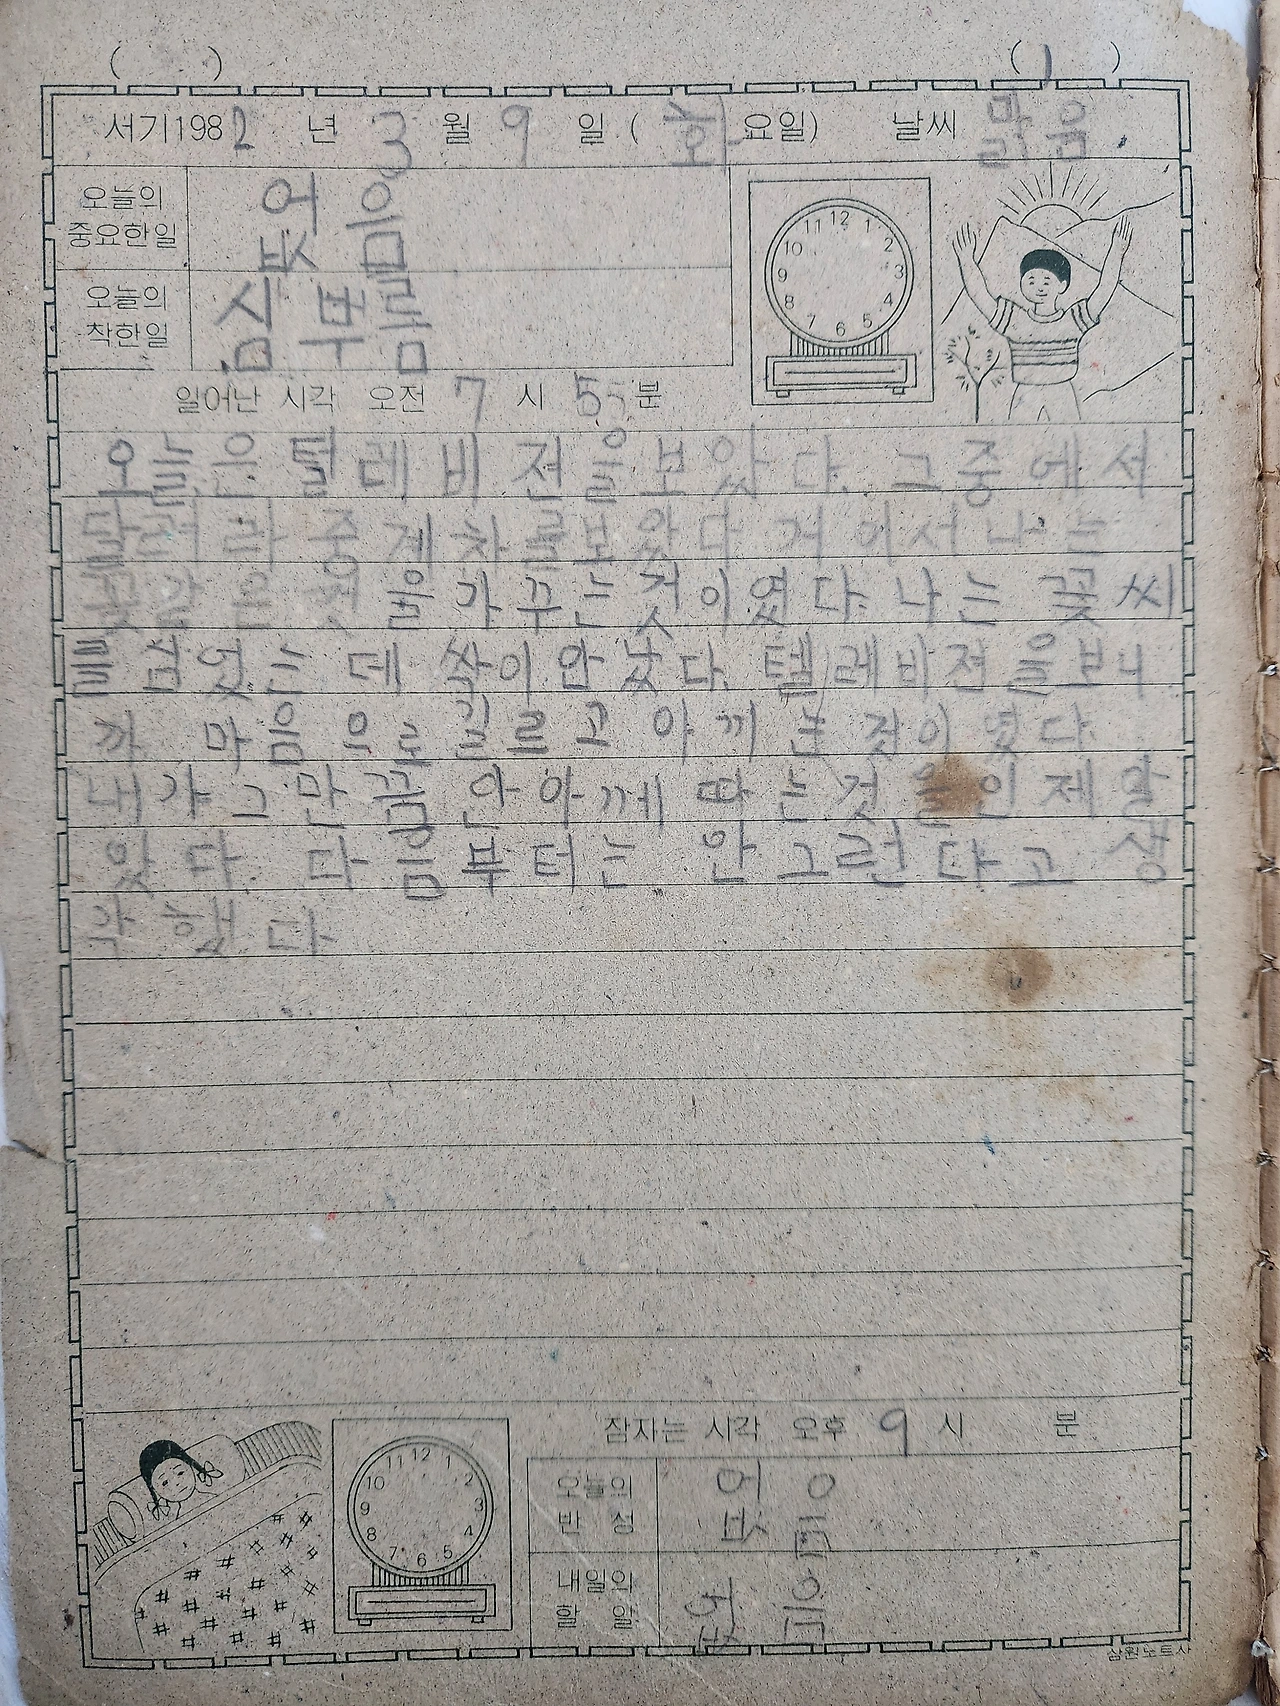 ( ) ( 1 )
서기1982년 3월 9일 (화요일) 날씨 맑음
오늘의 중요한일 없음
오늘의 착한일 심부름
일어난 시각 오전 7시 55분
12 1 2 3 4 5 6 7 8 9 10 11
오늘은 텔레비전을 보았다. 그중에서
달려라 중계차를보았다 거이서 나는
꽃같은 것을 가꾸는 것이였다. 나는 꽃씨
를 심었는데 싹이안났다. 텔레비전을보니
까 마음으로 길르고 아끼는 것이였다.
내가 그만큼 안아께 따는것을 인제 알
았다. 다음부터는 안그런다고 생
각했다
잠자는 시각 오후 9시 분
12 1 2 3 4 5 6 7 8 9 10 11
오늘의 반성 없음
내일의 할일 없음
삼원노트사